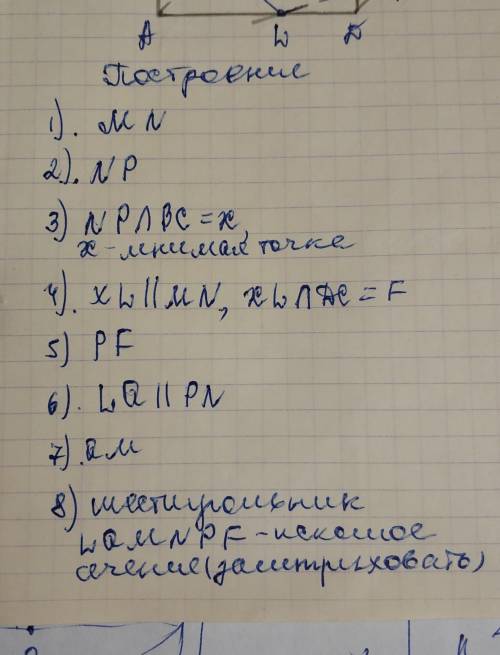 A W D
Построение
1). MN
2). NP
3) NP∩BC = X,
X - мнимая точка
4). XW || MN, XW∩DC = F
5) PF
6). WQ || PN
7). QM
8) шестиугольник
WQMNPF - искомое
сечение (заштриховать)